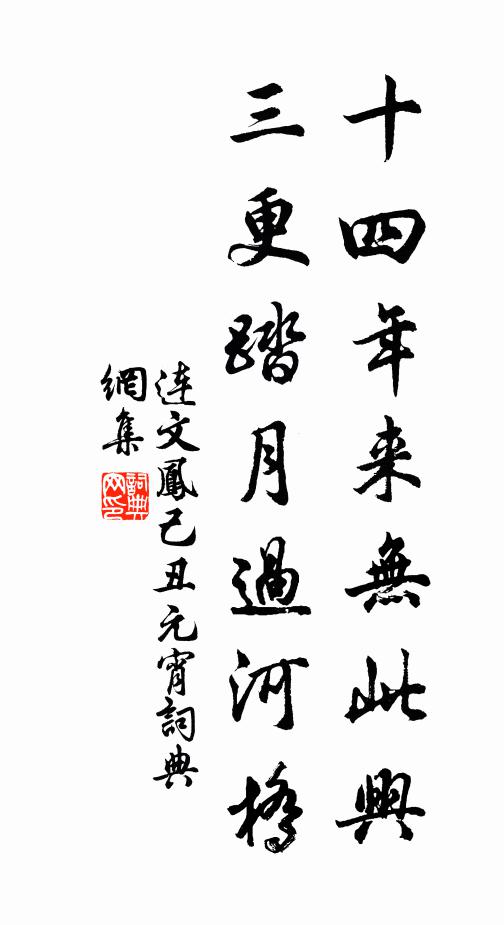 十四年来無此興
三更踏月過河橋
連文鳳己丑元宵詞典
網集
詞典
网印